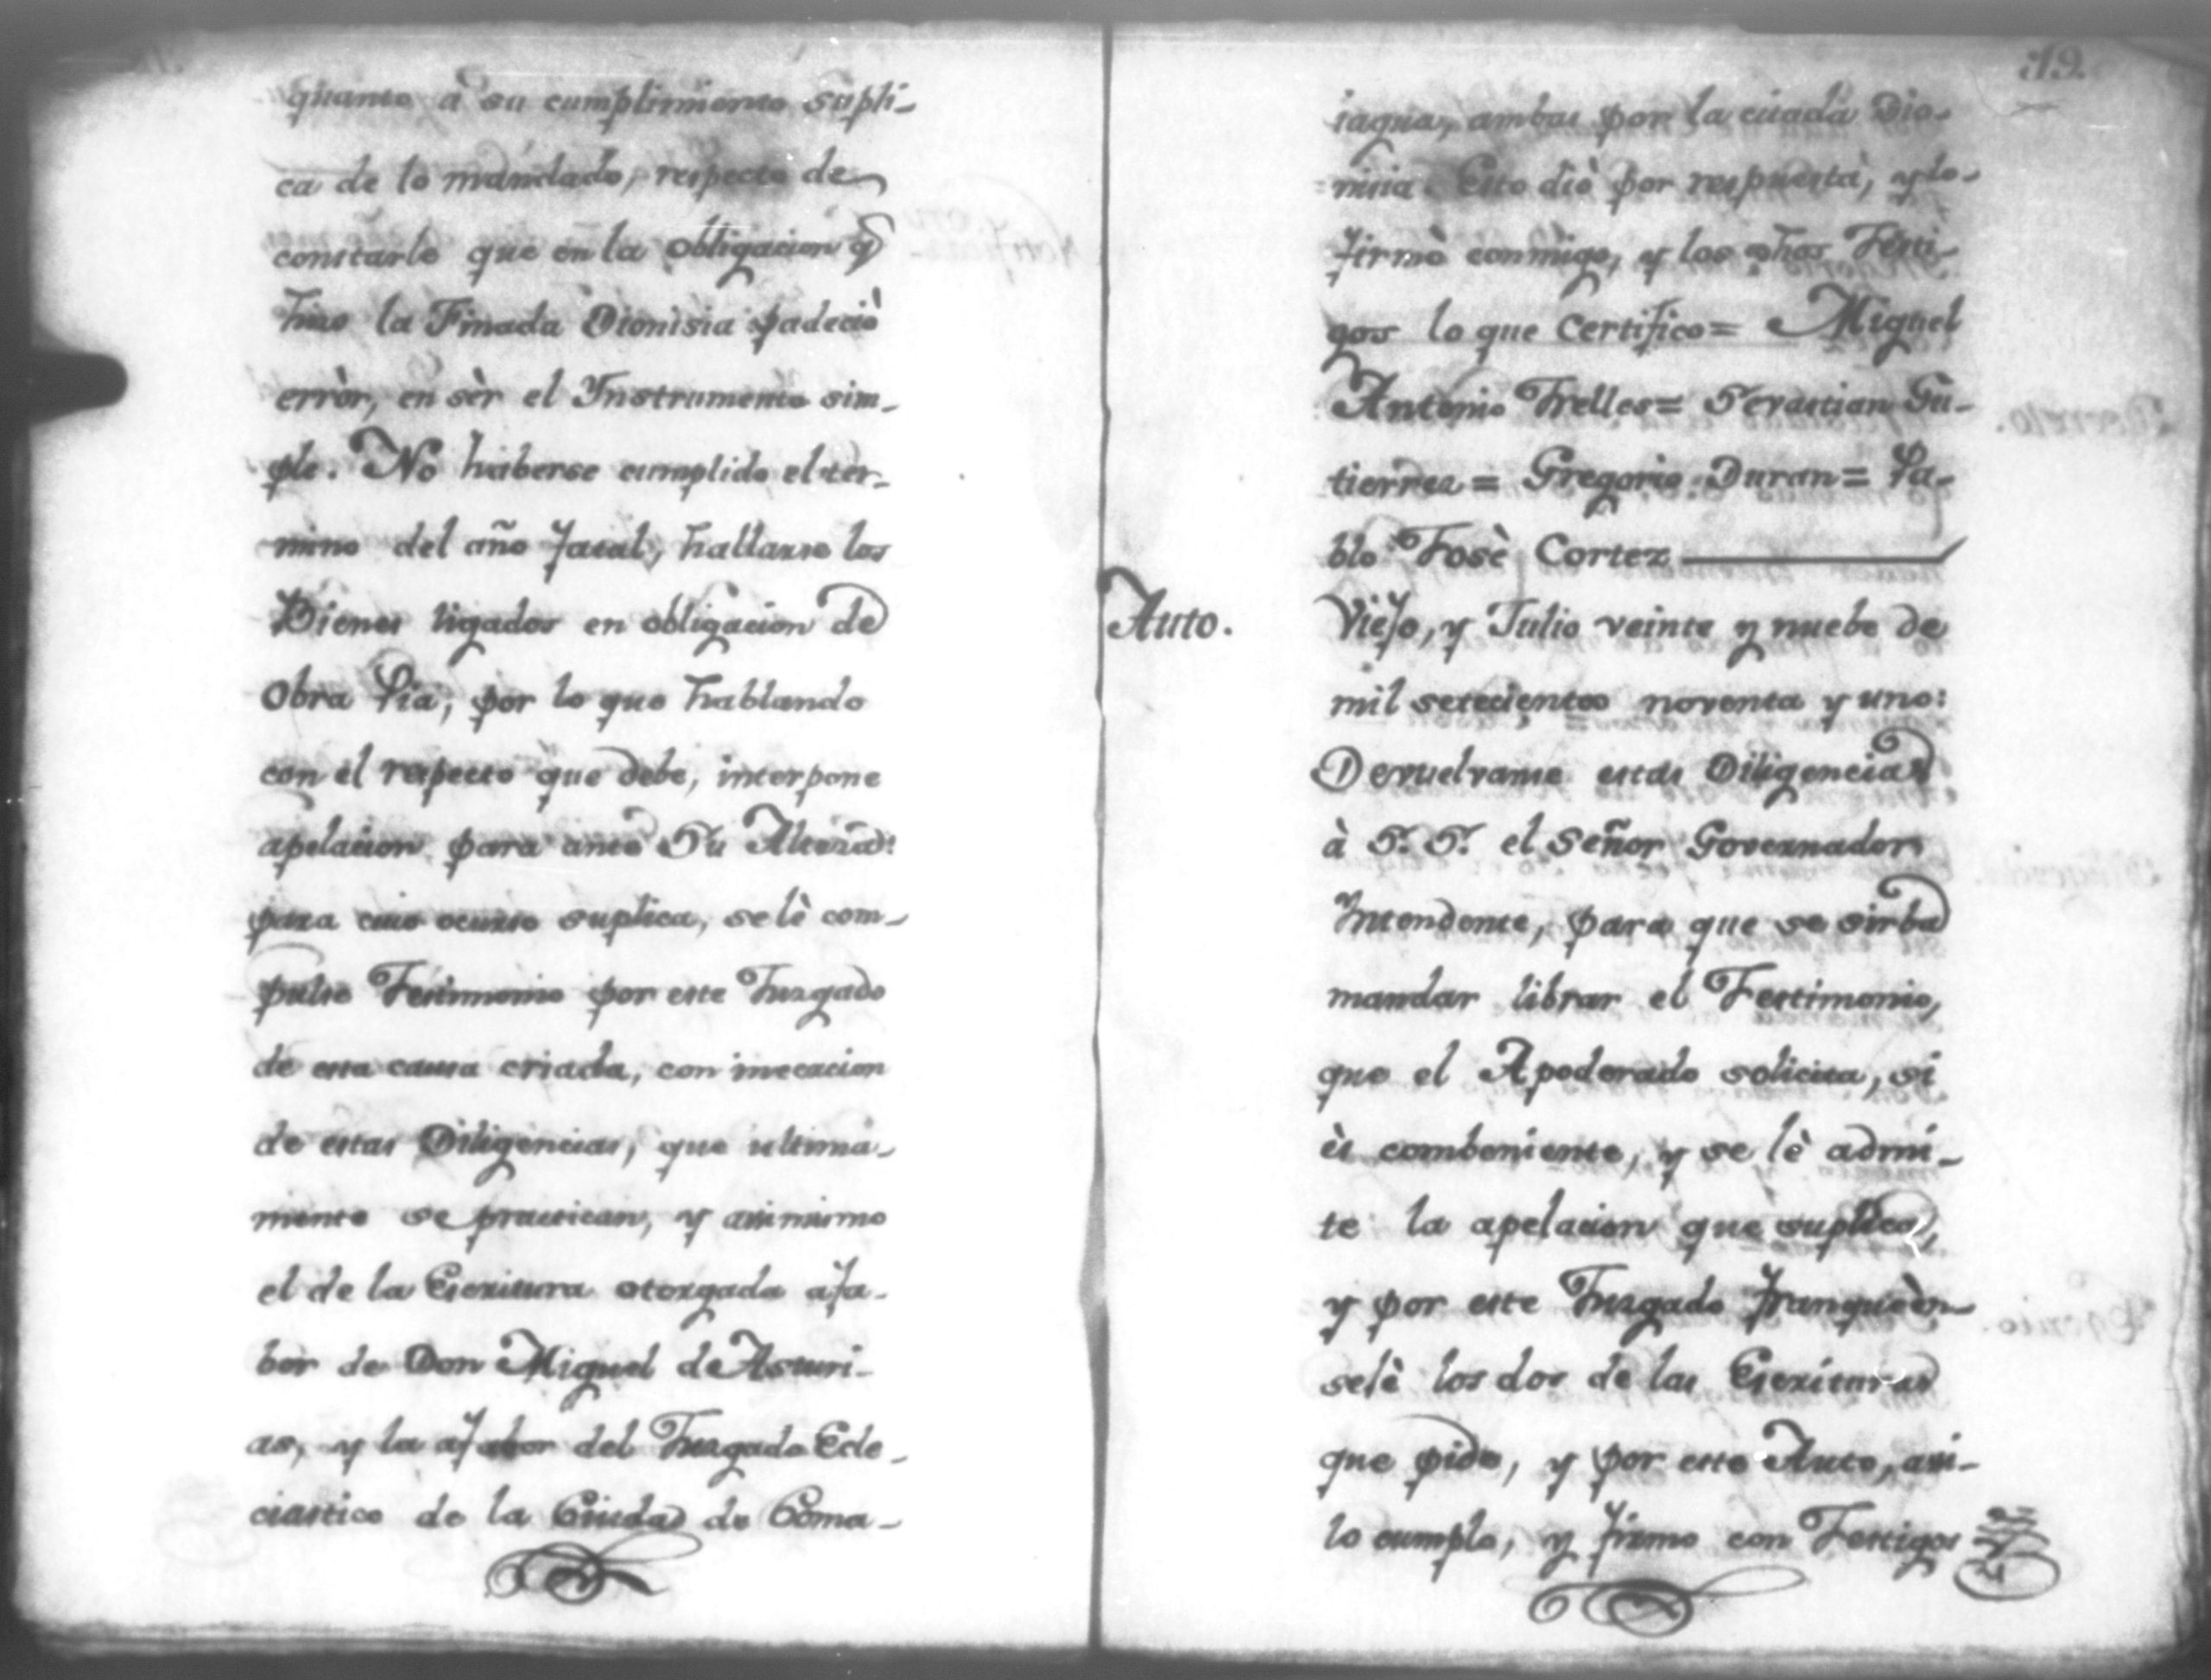 quanto à su cumplimiento supli-
ca de lo mandado, respecto de
constarle que en la obligacion q̃
hizo la Finada Dionisia padeciò
erròr, en sèr el Ynstrumento sim-
ple. No haberse cumplido el ter-
mino del año fatal, hallarse los
Bienes ligados en obligacion de
Obra Pia, por lo que hablando
con el respecto que debe, interpone
apelacion para ante Su Alteza:
para cuio ocurso suplica, se lè com-
pulse Testimonio por este Juzgado
de esta causa criada, con insercion
de estas Diligencias, que ultima-
mente se practican, y asi mismo
el de la Escritura otorgada a fa-
bor de Don Miguel de Asturi-
as, y la a fabor del Juzgado Ecle-
ciastico de la Ciudad de Coma-
19.
iagua, ambas por la citada Dio-
nisia. Esto diò por respuesta, y lo
firmò conmigo, y los dhos Testi-
gos lo que Certifico= Miguel
Antonio Trelles= Sevastian Gu-
tierrez= Gregorio Duran= Pa-
blo Josè Cortez
Auto.
Viejo, y Julio veinte y nuebe de
mil setecientos noventa y uno:
Devuelvanse estas Diligencias
à S. S. el Señor Governador
Yntendente, para que se sirba
mandar librar el Testimonio,
que el Apoderado solicita, si
ès combeniente, y se lè admi-
te la apelacion que suplica,
y por este Juzgado franqueèn-
selè los dos de las Escrituras
que pide, y por este Auto, asi-
lo cumplo, y firmo con Testigos